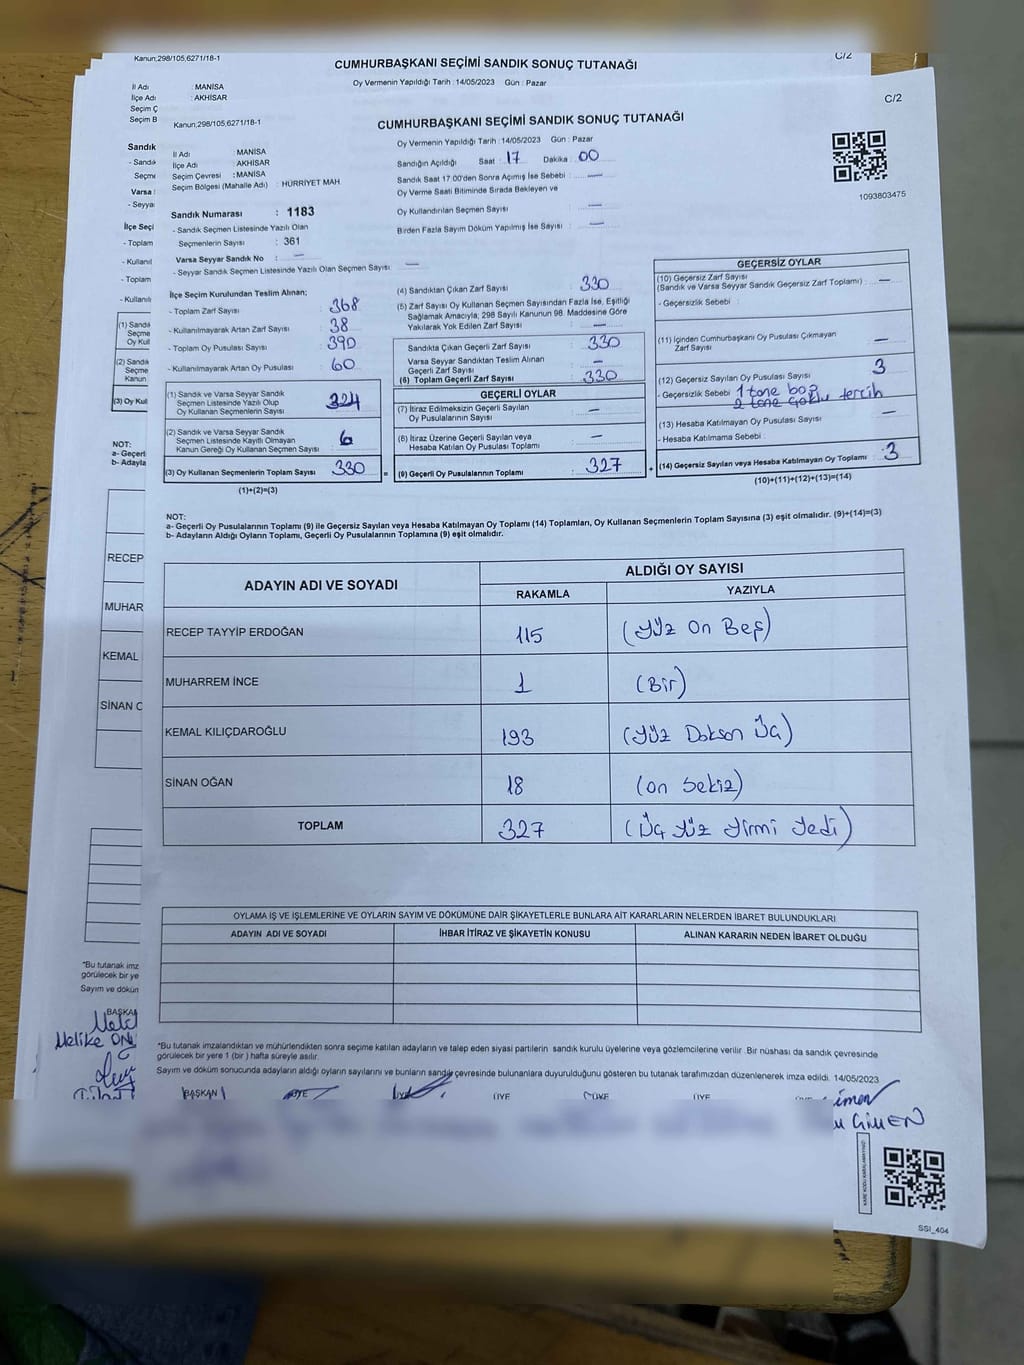 Kanun;298/105,6271/18-1
CUMHURBAŞKANI SEÇİMİ SANDIK SONUÇ TUTANAĞI
C/2
Oy Vermenin Yapıldığı Tarih : 14/05/2023 Gün : Pazar
İl Adı : MANİSA
İlçe Adı : AKHİSAR
Seçim Ç
Seçim B
Sandık
- Sandık
Seçme
Varsa
- Seyya
İlçe Seçi
- Toplam
- Kullanıl
- Toplam
- Kullanılı
(1) Sandı
Seçme
Oy Kul
(2) Sandık
Seçme
Kanun
(3) Oy Kul
NOT:
a- Geçerl
b- Adayla
RECEP
MUHAR
KEMAL
SİNAN O
*Bu tutanak imz
görülecek bir ye
Sayım ve dökün
BAŞKA
Melike
Kanun;298/105,6271/18-1
CUMHURBAŞKANI SEÇİMİ SANDIK SONUÇ TUTANAĞI
C/2
Oy Vermenin Yapıldığı Tarih : 14/05/2023 Gün : Pazar
İl Adı : MANİSA
İlçe Adı : AKHİSAR
Seçim Çevresi : MANİSA
Seçim Bölgesi (Mahalle Adı) : HÜRRİYET MAH
Sandığın Açıldığı Saat : 17 Dakika : 00
Sandık Saat 17.00'den Sonra Açılmış İse Sebebi : —
Oy Verme Saati Bitiminde Sırada Bekleyen ve
Oy Kullandırılan Seçmen Sayısı : —
Birden Fazla Sayım Döküm Yapılmış İse Sayısı : —
1093803475
Sandık Numarası : 1183
- Sandık Seçmen Listesinde Yazılı Olan
Seçmenlerin Sayısı : 361
Varsa Seyyar Sandık No : —
- Seyyar Sandık Seçmen Listesinde Yazılı Olan Seçmen Sayısı : —
İlçe Seçim Kurulundan Teslim Alınan;
- Toplam Zarf Sayısı : 368
- Kullanılmayarak Artan Zarf Sayısı : 38
- Toplam Oy Pusulası Sayısı : 390
- Kullanılmayarak Artan Oy Pusulası : 60
(1) Sandık ve Varsa Seyyar Sandık
Seçmen Listesinde Yazılı Olup
Oy Kullanan Seçmenlerin Sayısı : 324
(2) Sandık ve Varsa Seyyar Sandık
Seçmen Listesinde Kayıtlı Olmayan
Kanun Gereği Oy Kullanan Seçmen Sayısı : 6
(3) Oy Kullanan Seçmenlerin Toplam Sayısı : 330 =
(1)+(2)=(3)
(4) Sandıktan Çıkan Zarf Sayısı : 330
(5) Zarf Sayısı Oy Kullanan Seçmen Sayısından Fazla İse, Eşitliği
Sağlamak Amacıyla; 298 Sayılı Kanunun 98. Maddesine Göre
Yakılarak Yok Edilen Zarf Sayısı : —
Sandıkta Çıkan Geçerli Zarf Sayısı : 330
Varsa Seyyar Sandıktan Teslim Alınan
Geçerli Zarf Sayısı : —
(6) Toplam Geçerli Zarf Sayısı : 330
GEÇERLİ OYLAR
(7) İtiraz Edilmeksizin Geçerli Sayılan
Oy Pusulalarının Sayısı : —
(8) İtiraz Üzerine Geçerli Sayılan veya
Hesaba Katılan Oy Pusulası Toplamı : —
(9) Geçerli Oy Pusulalarının Toplamı : 327 +
GEÇERSİZ OYLAR
(10) Geçersiz Zarf Sayısı
(Sandık ve Varsa Seyyar Sandık Geçersiz Zarf Toplamı) : —
- Geçersizlik Sebebi :
(11) İçinden Cumhurbaşkanı Oy Pusulası Çıkmayan
Zarf Sayısı : —
(12) Geçersiz Sayılan Oy Pusulası Sayısı : 3
- Geçersizlik Sebebi : 1 tane boş
2 tane çoklu tercih
(13) Hesaba Katılmayan Oy Pusulası Sayısı : —
- Hesaba Katılmama Sebebi :
(14) Geçersiz Sayılan veya Hesaba Katılmayan Oy Toplamı : 3
(10)+(11)+(12)+(13)=(14)
NOT:
a- Geçerli Oy Pusulalarının Toplamı (9) ile Geçersiz Sayılan veya Hesaba Katılmayan Oy Toplamı (14) Toplamları, Oy Kullanan Seçmenlerin Toplam Sayısına (3) eşit olmalıdır. (9)+(14)=(3)
b- Adayların Aldığı Oyların Toplamı, Geçerli Oy Pusulalarının Toplamına (9) eşit olmalıdır.
ADAYIN ADI VE SOYADI ALDIĞI OY SAYISI
RAKAMLA YAZIYLA
RECEP TAYYİP ERDOĞAN 115 (Yüz On Beş)
MUHARREM İNCE 1 (Bir)
KEMAL KILIÇDAROĞLU 193 (Yüz Doksan Üç)
SİNAN OĞAN 18 (on sekiz)
TOPLAM 327 (Üç Yüz Yirmi Yedi)
OYLAMA İŞ VE İŞLEMLERİNE VE OYLARIN SAYIM VE DÖKÜMÜNE DAİR ŞİKAYETLERLE BUNLARA AİT KARARLARIN NELERDEN İBARET BULUNDUKLARI
ADAYIN ADI VE SOYADI İHBAR İTİRAZ VE ŞİKAYETİN KONUSU ALINAN KARARIN NEDEN İBARET OLDUĞU
*Bu tutanak imzalandıktan ve mühürlendikten sonra seçime katılan adayların ve talep eden siyasi partilerin sandık kurulu üyelerine veya gözlemcilerine verilir. Bir nüshası da sandık çevresinde
görülecek bir yere 1 (bir) hafta süreyle asılır.
Sayım ve döküm sonucunda adayların aldığı oyların sayılarını ve bunların sandık çevresinde bulunanlara duyurulduğunu gösteren bu tutanak tarafımızdan düzenlenerek imza edildi. 14/05/2023
BAŞKAN ÜYE ÜYE ÜYE ÜYE ÜYE
KARE KODU KARALAMAYINIZ!
SSI_404